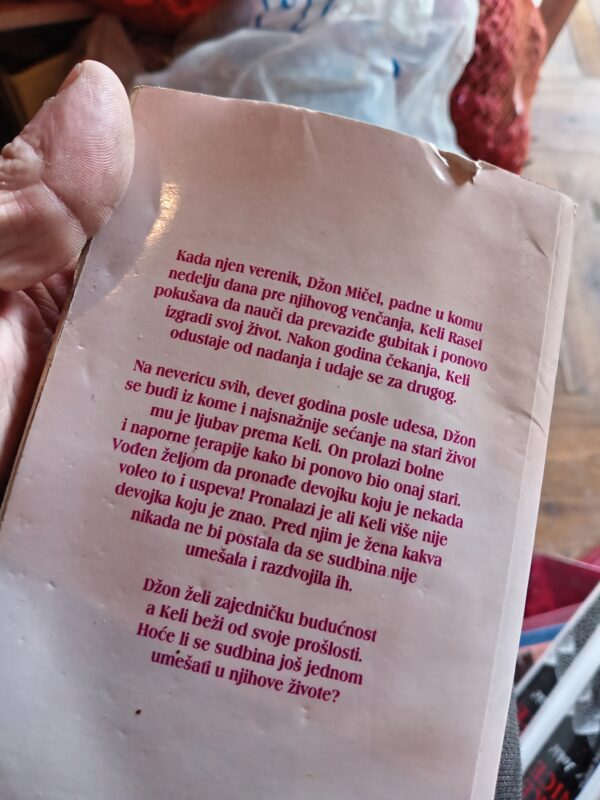 Kada njen verenik, Džon Mičel, padne u komu
nedelju dana pre njihovog venčanja, Keli Rasel
pokušava da nauči da prevaziđe gubitak i ponovo
izgradi svoj život. Nakon godina čekanja, Keli
odustaje od nadanja i udaje se za drugog.
Na nevericu svih, devet godina posle udesa, Džon
se budi iz kome i najsnažnije sećanje na stari život
mu je ljubav prema Keli. On prolazi bolne
i naporne terapije kako bi ponovo bio onaj stari.
Vođen željom da pronađe devojku koju je nekada
voleo to i uspeva! Pronalazi je ali Keli više nije
devojka koju je znao. Pred njim je žena kakva
nikada ne bi postala da se sudbina nije
umešala i razdvojila ih.
Džon želi zajedničku budućnost
a Keli beži od svoje prošlosti.
Hoće li se sudbina još jednom
umešati u njihove živote?